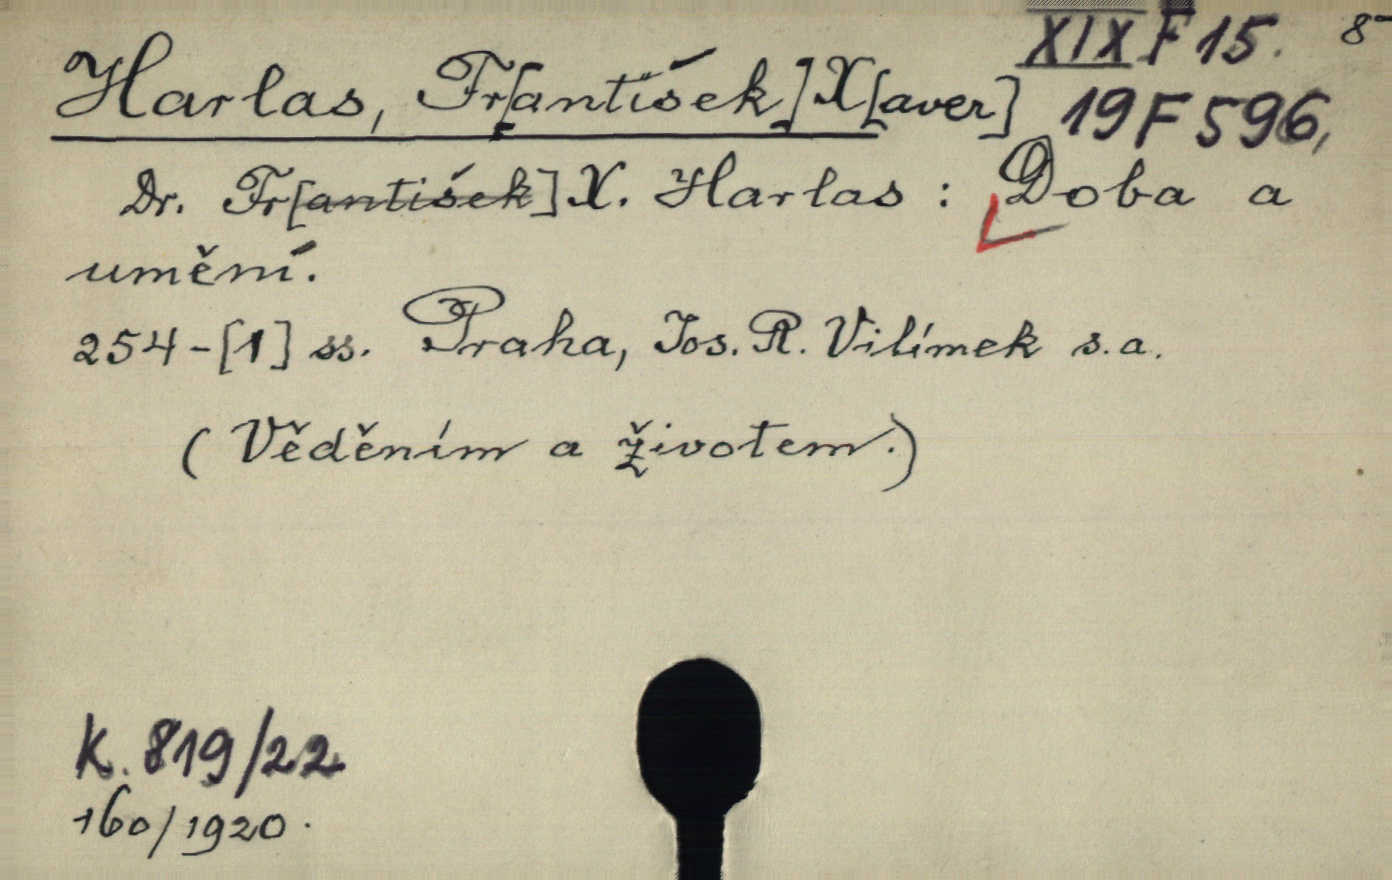 XIX F 15. 8°
Harlas, Fr[antišek] X[aver]
19 F 596,
Dr. Fr[antišek] X. Harlas : Doba a
umění.
254-[1] ss. Praha, Jos. R. Vilímek s.a.
(Věděním a životem.)
K. 819/22
160/1920.